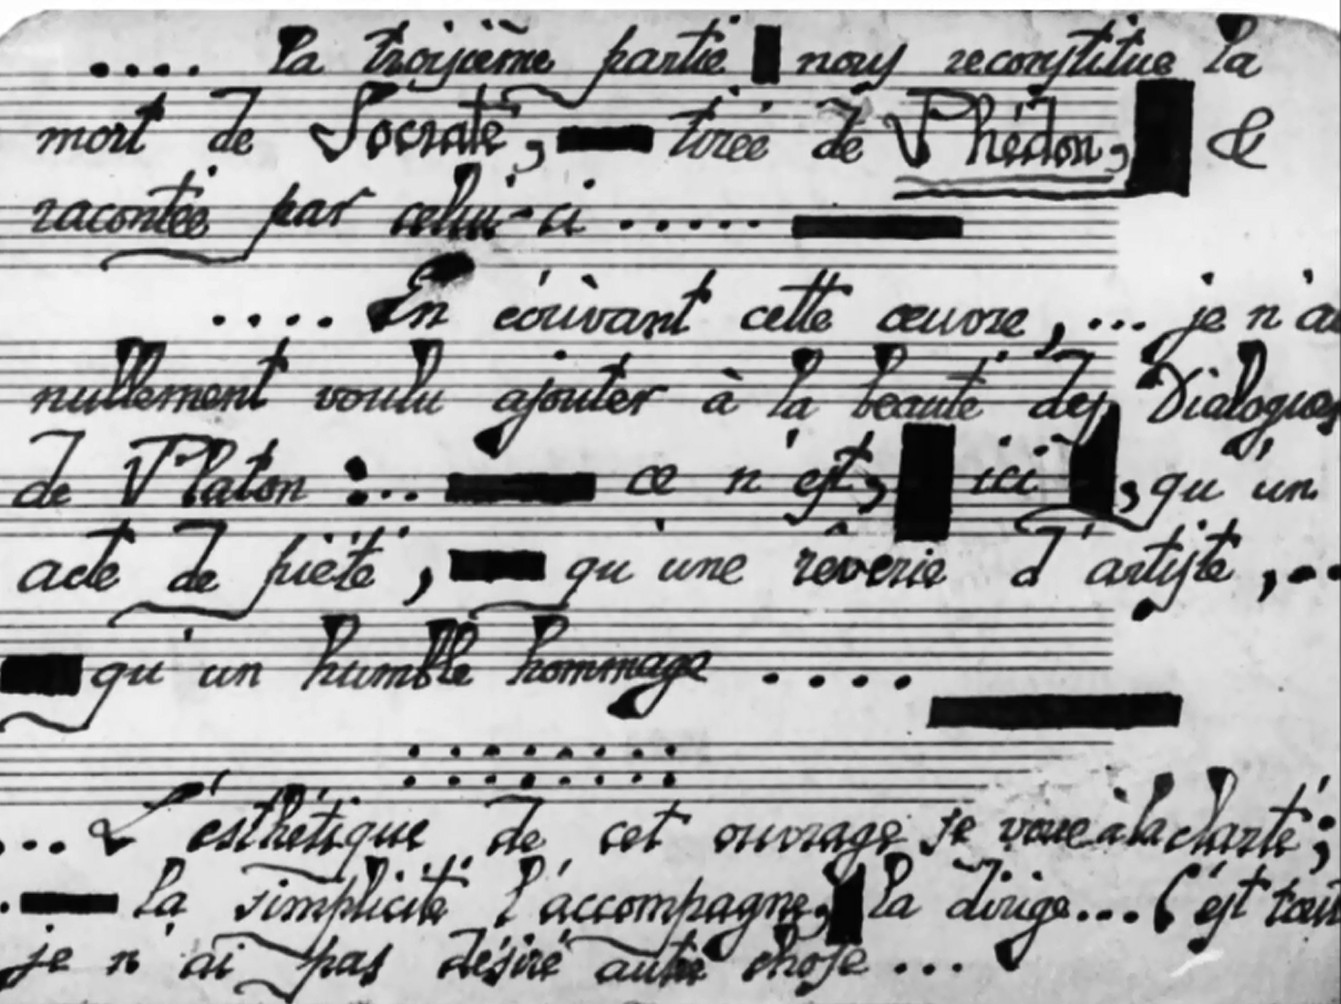 .... la troisième partie nous reconstitue la
mort de Socrate, tirée de Phédon, &
racontée par celui-ci .....
.... En écrivant cette œuvre, ... je n'ai
nullement voulu ajouter à la beauté des Dialogues
de Platon : .. ce n'est, ici, qu'un
acte de piété, qu'une rêverie d'artiste, ..
qu'un humble hommage ....
... L'esthétique de cet ouvrage je voue à la clarté;
. la simplicité l'accompagne, la dirige... C'est tout
je n'ai pas désiré autre chose ...